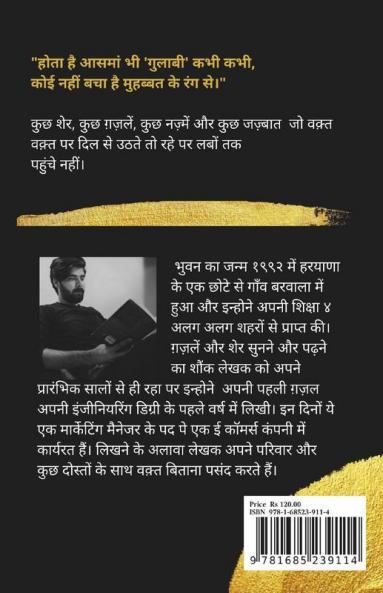 "होता है आसमां भी 'गुलाबी' कभी कभी,
कोई नहीं बचा है मुहब्बत के रंग से।"
कुछ शेर, कुछ ग़ज़लें, कुछ नज़्में और कुछ जज़्बात जो वक़्त
वक़्त पर दिल से उठते तो रहे पर लबों तक
पहुंचे नहीं।
भुवन का जन्म १९९२ में हरयाणा
के एक छोटे से गाँव बरवाला में
हुआ और इन्होने अपनी शिक्षा ४
अलग अलग शहरों से प्राप्त की।
ग़ज़लें और शेर सुनने और पढ़ने
का शौंक लेखक को अपने
प्रारंभिक सालों से ही रहा पर इन्होने अपनी पहली ग़ज़ल
अपनी इंजीनियरिंग डिग्री के पहले वर्ष में लिखी। इन दिनों ये
एक मार्केटिंग मैनेजर के पद पे एक ई कॉमर्स कंपनी में
कार्यरत हैं। लिखने के अलावा लेखक अपने परिवार और
कुछ दोस्तों के साथ वक़्त बिताना पसंद करते हैं।
Price Rs 120.00
ISBN 978-1-68523-911-4
9 781685 239114